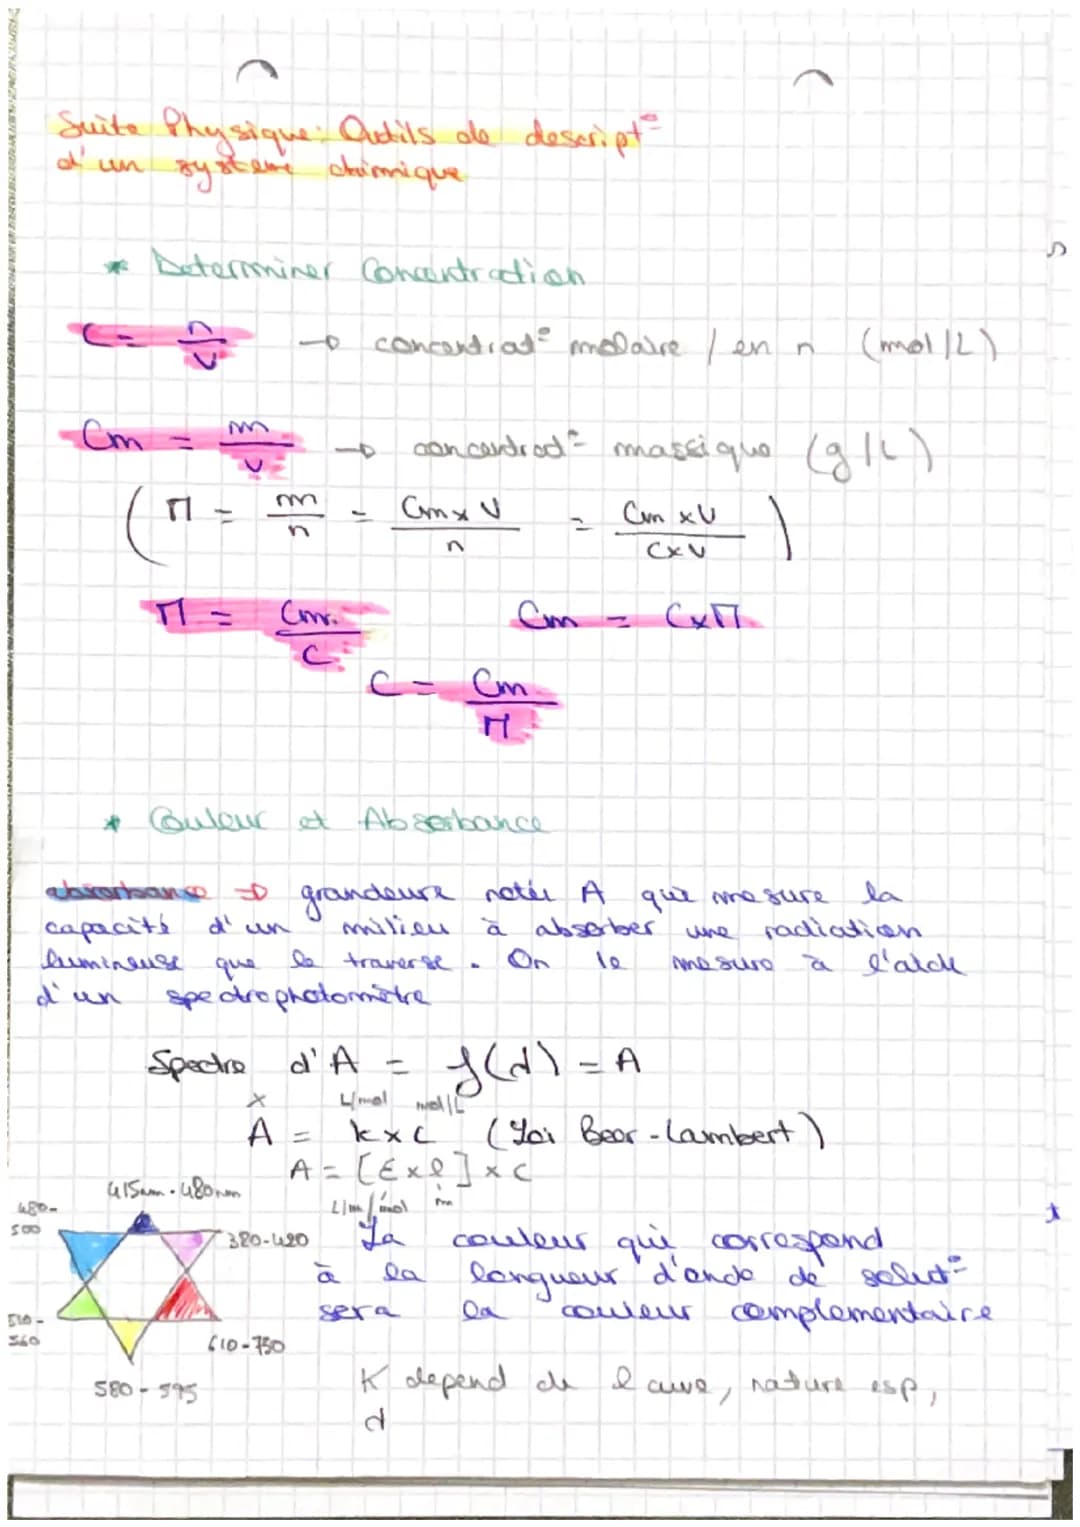 Suite Physique: Outils de descript°
d'un systeme chimique
* Determiner Concentration
C = n/V → concentrat° molaire / en n (mol/L)
Cm = m/V → concentrat° massique (g/L)
( M = m/n = Cm x V/n = Cm x V/C x V )
M = Cm/C Cm = C x M
C = Cm/M
* Couleur et Absorbance
absorbance → grandeure notée A qui mesure la
capacité d'un milieu à absorber une radiation
lumineuse que le traverse. On le mesure à l'aide
d'un spectrophotomètre
Spectre d'A = f(λ) = A
x L/mol mol/L
A = k x c (Loi Beer-Lambert)
A = [ε x l] x c
L/m/mol m
415nm - 480nm
480-
500
380-420
510-
560
610-750
580 - 595
La couleur qui correspond
à la longueur d'onde de solut°
sera la couleur complementaire
K depend de l cuve, nature esp,
λ